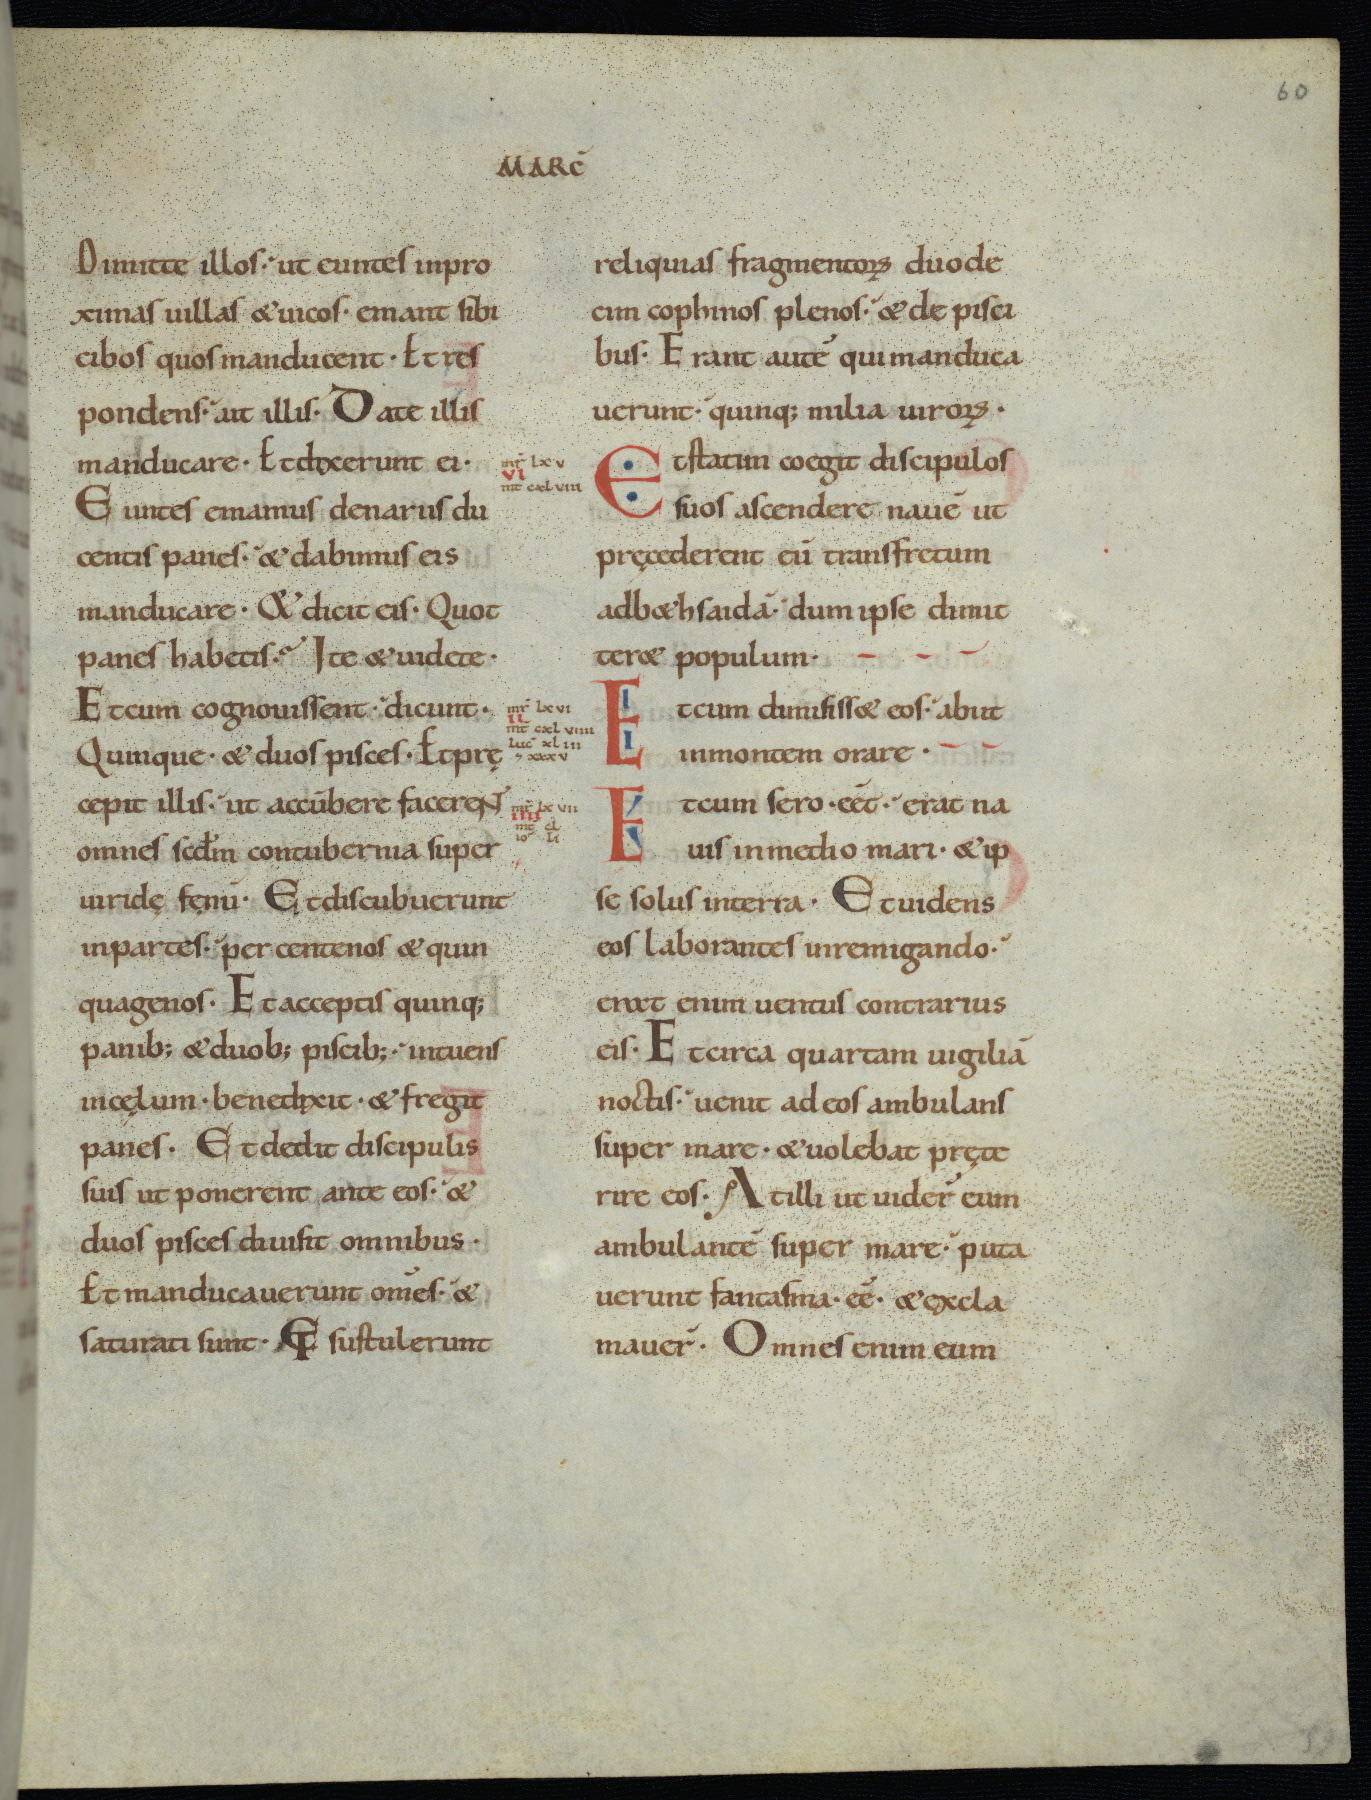 60
MARC̄
Dimitte illos· ut euntes inpro
ximas uillas & uicos· emant sibi
cibos quos manducent· Et res
pondens· ait illis· Date illis
manducare· Et dixerunt ei·
Euntes emamus denariis du
centis panes· & dabimus eis
manducare· & dicit eis· Quot
panes habetis· Ite & uidete·
Et cum cognouissent· dicunt·
Quinque· & duos pisces· Et prę
cepit illis· ut accūbere facerent
omnes scđm contubernia super
uiridę fęnū· Et discubuerunt
inpartes· per centenos & quin
quagenos· Et acceptis quinq;
panib; & duob; piscib;· intuens
incęlum· benedixit· & fregit
panes· Et dedit discipulis
suis ut ponerent ante eos· &
duos pisces diuisit omnibus·
Et manducauerunt om̄es· &
saturati sunt· Et sustulerunt
mr̄ lxv
VI
mt cxlviii
mr̄ lxvi
II
mt cxlviiii
Luc̄ xliii
xxxv
mr̄ lxvii
IIII
mt cl
io li
reliquias fragmentoꝝ duode
cim cophinos plenos· & de pisci
bus· Erant autē qui manduca
uerunt· quinq; milia uiroꝝ·
Et statim coegit discipulos
suos ascendere nauē ut
pręcederent eū transfretum
adb&hsaidā· dum ipse dimit
ter& populum·
Et cum dimisiss& eos· abiit
inmontem orare·
Et cum sero· eēt· erat na
uis inmedio mari· & ip
se solus interra· Et uidens
eos laborantes inremigando·
erat enim uentus contrarius
eis· Et circa quartam uigiliā
noctis· uenit ad eos ambulans
super mare· & uolebat pręte
rire eos· At illi ut uider̄ eum
ambulantē super mare· puta
uerunt fantasma· eē· & excla
mauer̄· Omnes enim eum